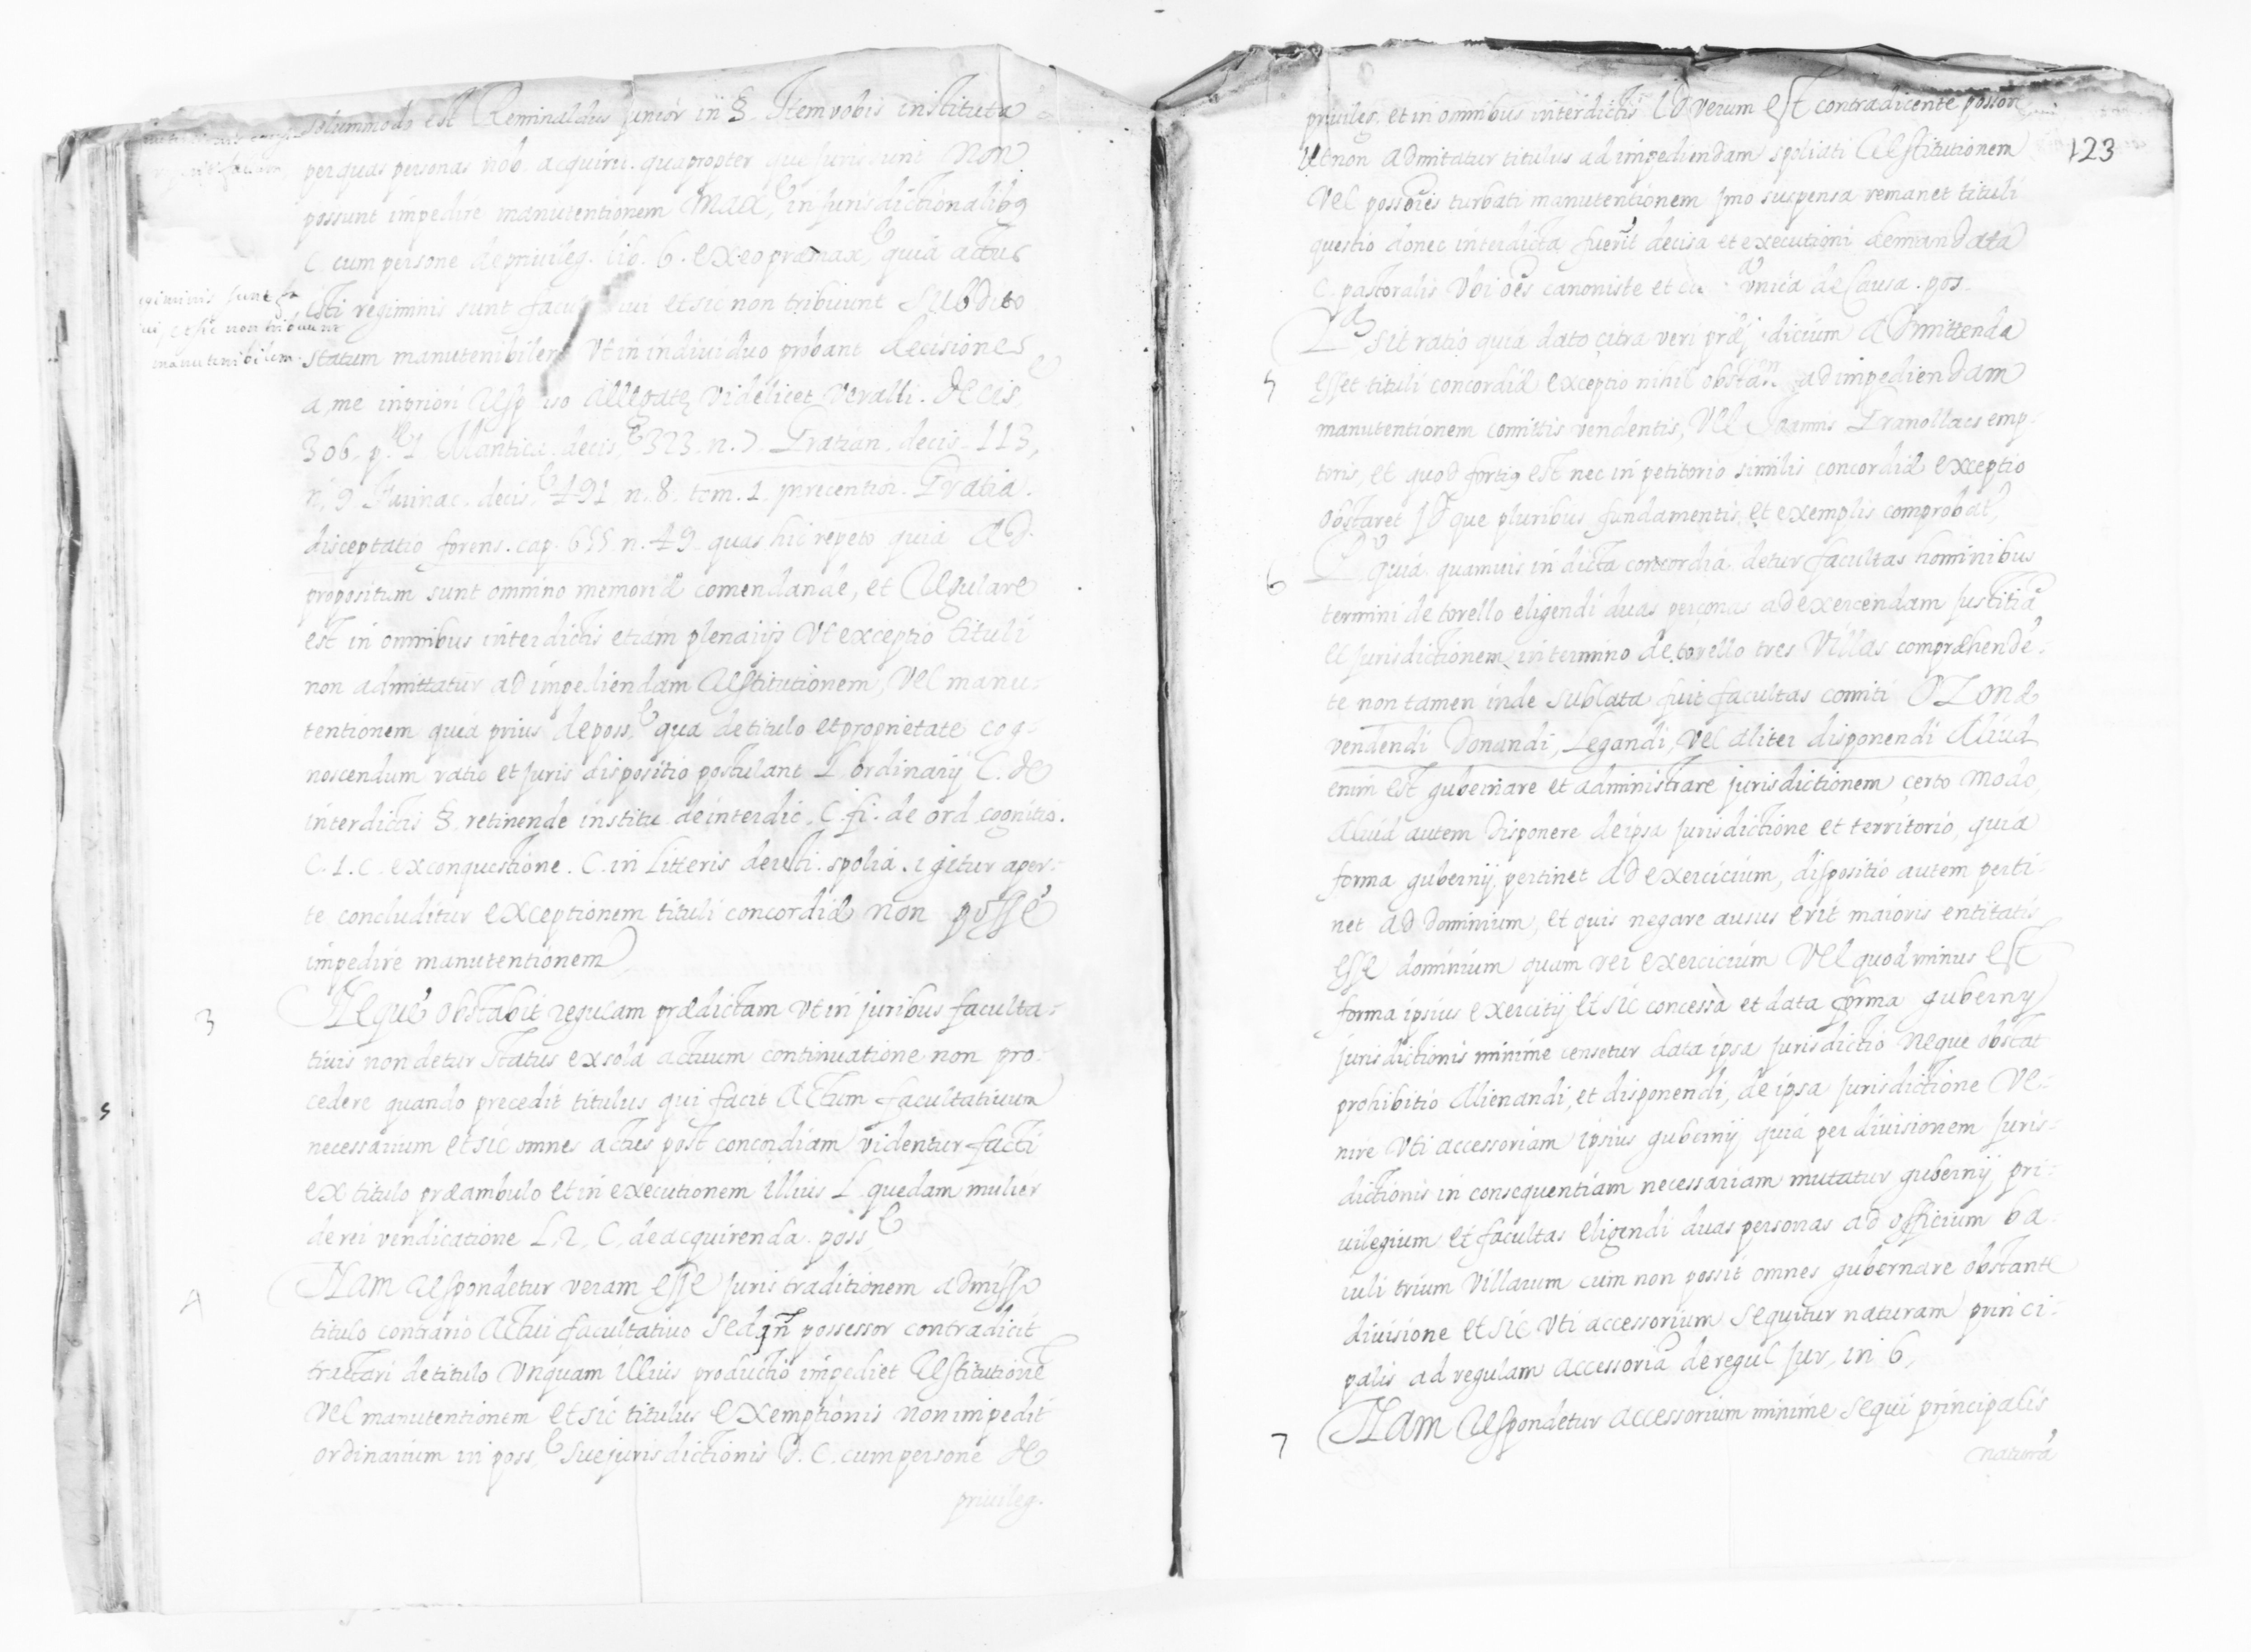 solummodo est Reminaldus junior in §. Item vobis instituta
per quas personas nob. acquiru. quapropter que juris sunt non
possunt impedire manutentionem max.e in jurisdictionalibq
C. cum persone de priuileg. lib. 6. ex eo præmax.e quia actus
isti regiminis sunt facul ui et sic non tribuunt subdito
statum manutenibilem Vt in indiuiduo probant decisiones
a me in priori Resp so allegate Videlicet Veralli. decis.e
306. p.e 1 Mantica. decis.e 323. n. 7. Gratian. decis. 113,
n. 9. Farinac. decis.e 491 n. 8. tom. 1. in recentior. Gratia.
disceptatio forens. cap. 655. n. 49. quas hic repeto quia ad
propositum sunt omnino memoriæ comendande, et Regulare
est in omnibus interdictis etiam plenarijs Vt exceptio tituli
non admittatur ad impediendam Restitutionem, Vel manu-
tentionem quia prius de poss.e qua de titulo et proprietate cog-
noscendum ratio et juris dispositio postulant L. ordinarij C. de
interdictis §. retinende institu. de interdic. C. fi. de ord. cognitio.
C. 1. C. ex conquestione. C. in Litteris de resti. spolia. igitur aper-
te concluditur exceptionem tituli concordiæ non posse
impedire manutentionem
3 Neque obstabit regulam prædictam Vt in juribus faculta-
tiuis non detur status ex sola actuum continuatione non pro-
cedere quando precedit titulus qui facit actum facultatiuum
necessarium et sic omnes actus post concordiam videntur facti
ex titulo præambulo et in executionem illius L. quedam mulier
de rei vendicatione L. 2. C. de acquirenda poss.e
4 Nam Respondetur veram esse juris traditionem admisso
titulo contrario actui facultatiuo sed in possessor contradicit
tractari de titulo Vnquam illius productio impediet Restitutione
Vel manutentionem et sic titulus exemptionis non impedit
ordinarium in poss.e sue jurisdictionis d. C. cum persone de
priuileg.
giminis sunt fa
ui, et sic non tribuunt
manutenibilem.
123
priuileg. et in omnibus interdictis id verum est contradicente posson
Ut non admitatur titulus ad impediendam spoliati Restitutionem
Vel possoris turbati manutentionem imo suspensa remanet tituli
questio donec interdicta fuerit decisa et executioni demandata
C. pastoralis Vbi oes canoniste et Vnica de Causa. pos.
5 sit ratio quia dato citra veri præjudicium admittenda
esset tituli concordiæ exceptio nihil obstan ad impediendam
manutentionem comitis vendentis, Vel Joannis Granollacs emp-
toris, et quod fortiq est nec in petitorio similis concordiæ exceptio
obstaret Id que pluribus fundamentis et exemplis comprobat
6 Po quia quamuis in dicta concordia detur facultas hominibus
termini de torello eligendi duas personas ad exercendam justitia
et jurisdictionem in termino de torello tres Villas comprehende-
te non tamen inde sublata fuit facultas comiti OZonæ
vendendi Donandi, Legandi, Vel aliter disponendi Aliud
enim est gubernare et administrare jurisdictionem certo modo
Aliud autem Disponere de ipsa jurisdictione et territorio, quia
forma gubernij pertinet ad exercicium, dispositio autem perti-
net ad dominium, et quis negare ausus erit maioris entitatis
esse dominium quam rei exercicium Vel quod minus est
forma ipsius exercitij et sic concessa et data forma gubernij
jurisdictionis minime censetur data ipsa jurisdictio Neque obstat
prohibitio Alienandi, et disponendi, de ipsa jurisdictione Ve-
nire Vti accessoriam ipsius gubernij quia per diuisionem juris-
dictionis in consequentiam necessariam mutatur gubernij pri-
uilegium et facultas eligendi duas personas ad officium ba-
iuli trium Villarum cum non possit omnes gubernare obstante
diuisione et sic Vti accessorium sequitur naturam princi-
palis ad regulam accessoria de regul. jur. in 6.
7 Nam Respondetur accessorium minime sequi principalis
natura